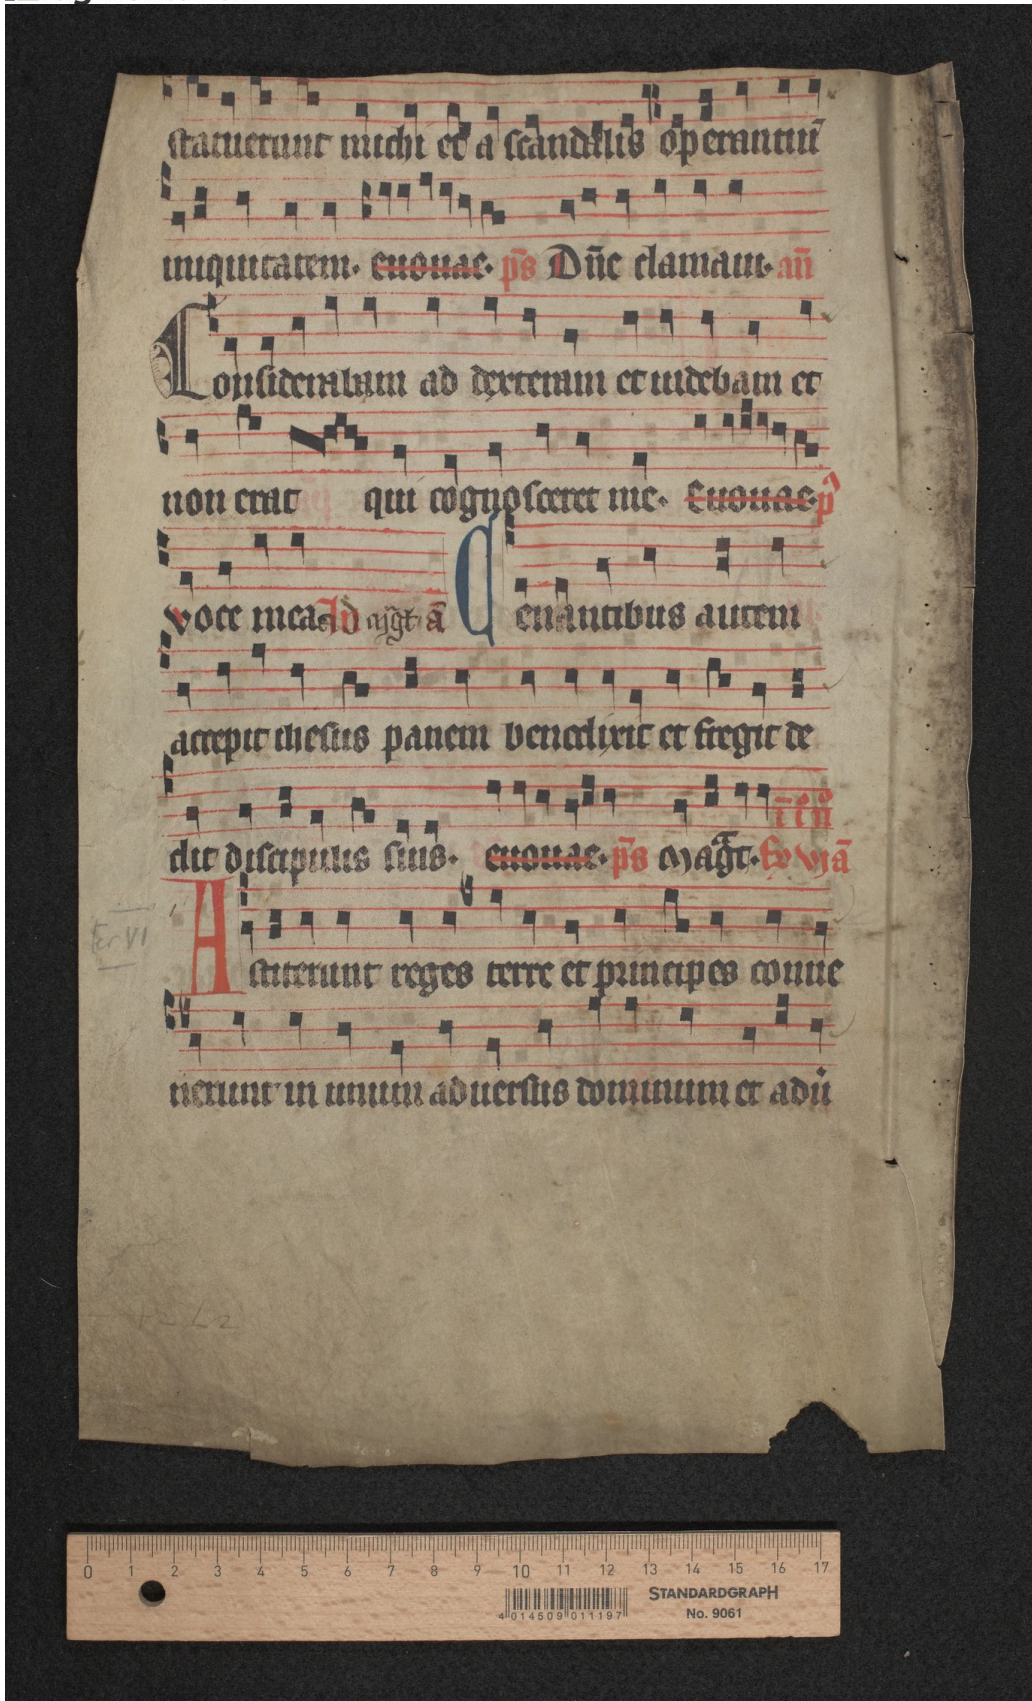 statuerunt michi et a scandalis operantiū
iniquitatem. euouae. ps̄ Dn̄e clamaui. an̄
Considerabam ad dexteram et uidebam et
non erat qui cognosceret me. Euouae. p̄
voce mea Ad mgt̄ ā Cenantibus autem
accepit ihesus panem benedixit et fregit de
dit discipulis suis. euouae. ps̄ Magt̄. fr vi ā
i i n
Fr VI
Astiterunt reges terre et principes conue
nerunt in unum aduersus dominum et adū
0 1 2 3 4 5 6 7 8 9 10 11 12 13 14 15 16 17
4 014509 011197
STANDARDGRAPH
No. 9061